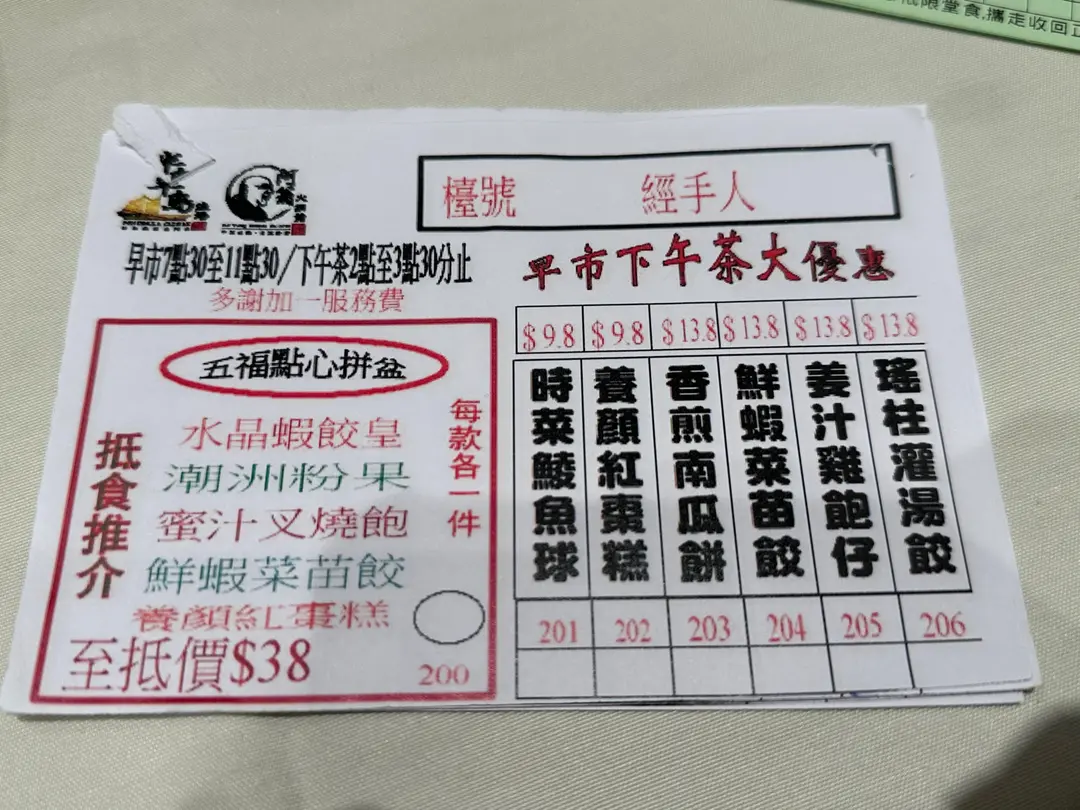 限堂食,攜走收回正
檯號 經手人
早市7點30至11點30/下午茶2點至3點30分止
多謝加一服務費
五福點心拼盆
抵食推介
水晶蝦餃皇
潮洲粉果
蜜汁叉燒飽
鮮蝦菜苗餃
養顏紅棗糕
每款各一件
至抵價$38
200
早市下午茶大優惠
$9.8 $9.8 $13.8 $13.8 $13.8 $13.8
時菜鯪魚球
養顏紅棗糕
香煎南瓜餅
鮮蝦菜苗餃
姜汁雞飽仔
瑤柱灌湯餃
201 202 203 204 205 206